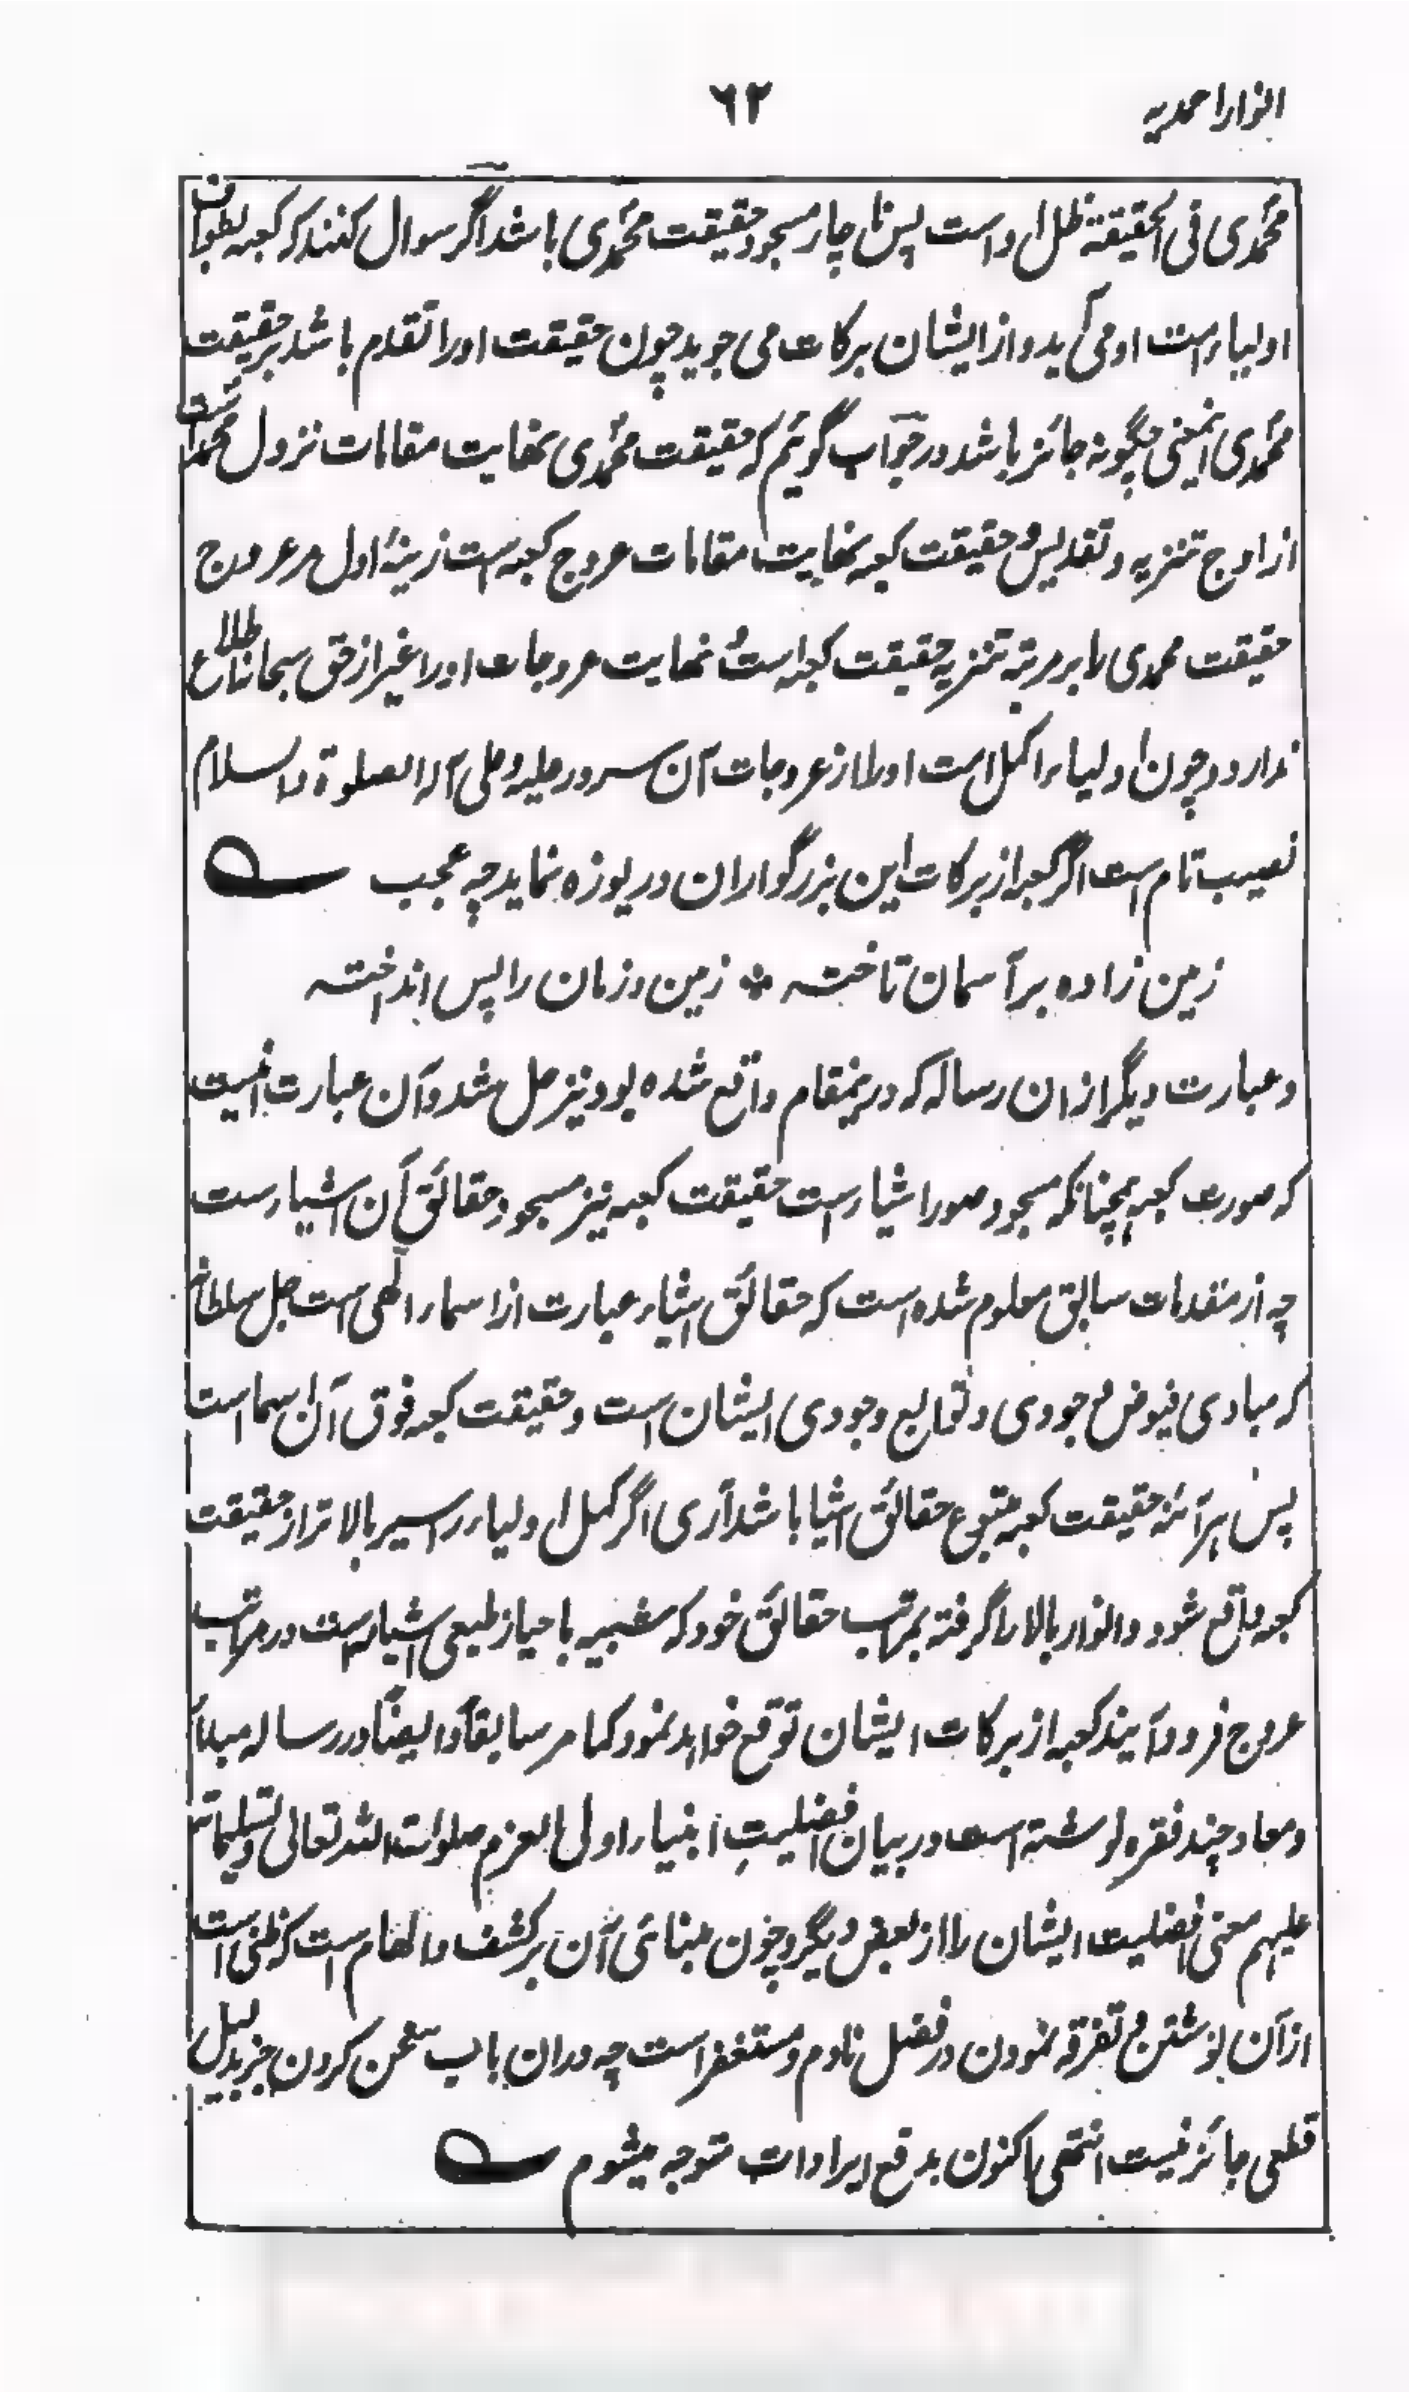 انوار احمدیه
۶۲
محمدی فی الحقیقة ظل او است پس نا چار مسجود حقیقت محمدی باشد اگر سوال کنند که کعبه بطواف
اولیاء است او می آید و از ایشان برکات می جوید چون حقیقت او را تقدم باشد بر حقیقت
محمدی اینمعنی چگونه جائز باشد در جواب گوئیم که حقیقت محمدی نهایت مقامات نزول محمد است
از اوج تنزیه و تقدیس و حقیقت کعبه نهایت مقامات عروج کعبه است زینهٔ اول مر عروج
حقیقت محمدی را بر مرتبه تنزیه حقیقت کعبه است و نهایت عروجات او را غیر از حق سبحانه اطلاع
ندارد و چون اولیاء اکمل است او را از عروجات آن سرور علیه و علی آله الصلوة والسلام
نصیب تام است اگر کعبه از برکات این بزرگواران دریوزه نماید چه عجب
زمین زاده بر آسمان تاخته * زمین و زمان را پس انداخته
و عبارت دیگر ازان رساله که درینمقام واقع شده بود نیز حل شد و آن عبارت اینست
که صورت کعبه همچنانکه مسجود صور اشیاء است حقیقت کعبه نیز مسجود حقائق آن اشیاء است
چه از مقدمات سابق معلوم شده است که حقائق اشیاء عبارت از اسماء الهی است جل سلطانه
که مبادی فیوض وجودی و توابع وجودی ایشان است و حقیقت کعبه فوق آن اسما است
پس هر آئنه حقیقت کعبه متبوع حقائق اشیا باشد آری اگر کمل اولیاء را سیر بالا تر از حقیقت
کعبه واقع شود و انوار بالا را گرفته بمراتب حقائق خود که شبیه باحیاز طبیعی اشیاء است در مراتب
عروج فرود آیند کعبه از برکات ایشان توقع خواهد نمود کما مر سابقاً و ایضاً در رساله مبدأ
و معاد چند فقره نوشته است در بیان افضلیتِ انبیاء اولی العزم صلوات الله تعالی و تسلیماته
علیهم معنی افضلیت ایشان را از بعض دیگر و چون مبنائی آن بر کشف و الهام است که ظنی است
از آن نوشتن و تفرقه نمودن در فضل نادم و مستغفر است چه دران باب سخن کردن جز بدلیل
قطعی جائز نیست انتهی اکنون بدفع ایرادات متوجه میشوم